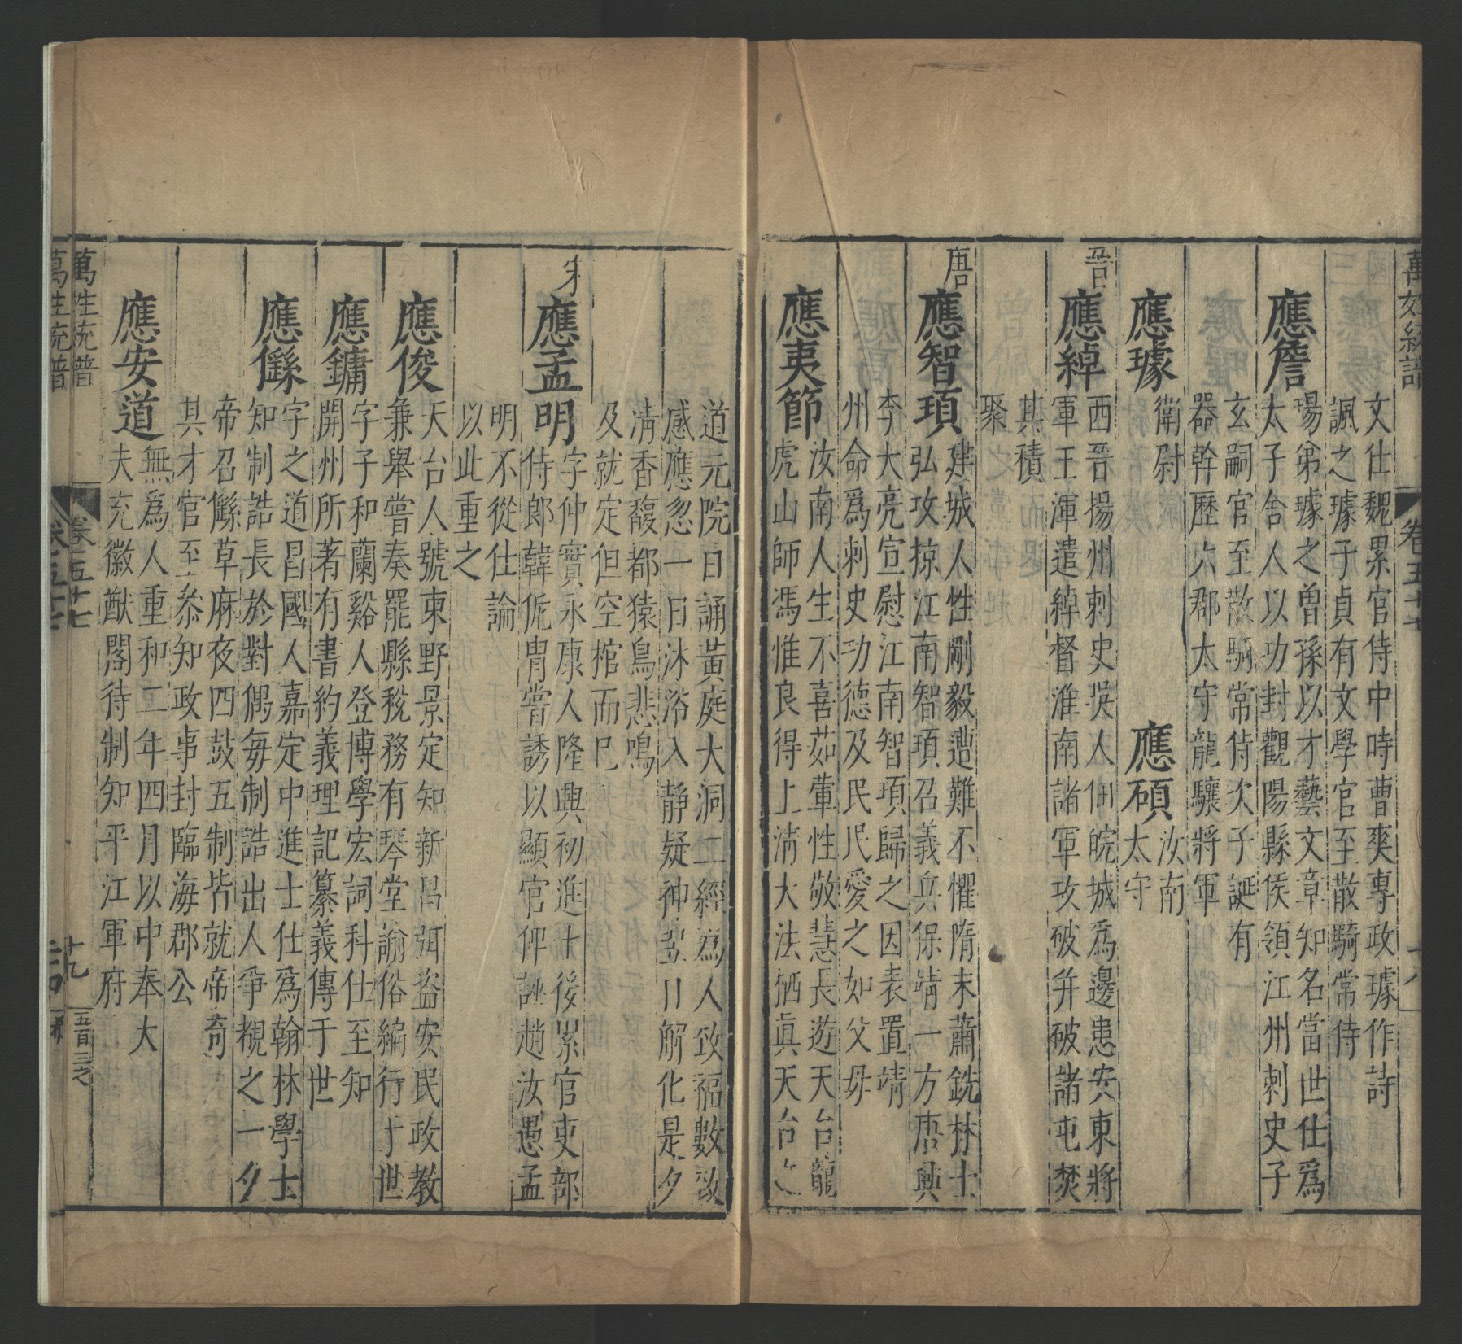 萬姓統譜 卷五十七 十八
文仕魏累官侍中時曹爽專政璩作詩
諷之璩子貞有文學官至散騎常侍
應詹
瑒弟璩之曾孫以才藝文章知名當世仕爲
太子舍人以功封觀陽縣侯領江州刺史子
玄嗣官至散騎常侍次子誕有
器幹歷六郡太守龍驤將軍
應璩
衛尉
應碩
汝南
太守
晉
應綽
西晉揚州刺史吳人佃皖城爲邊患安東將
軍王渾遣綽督淮南諸軍攻破并破諸屯焚
其積
聚
唐
應智頊
建城人性剛毅遭難不懼隋末蕭銑林士
弘攻掠江南智頊召義兵保靖一方唐興
李大亮宣慰江南智頊歸之因表置靖
州命爲刺史功德及民民愛之如父母
應夷節
汝南人生不喜茹葷性敏慧長遊天台龍
虎山師馮惟良得上清大法栖眞天台之
道元院日誦黃庭大洞二經爲人致福數致
感應忽一日沐浴入靜疑神翌日解化是夕
清香馥郁猿鳥悲鳴
及就定但空棺而已
宋
應孟明
字仲實永康人隆興初進士後累官吏部
侍郎韓侂胄嘗誘以顯官俾誣趙汝愚孟
明不從仕論
以此重之
應俊
天台人號東野景定知新昌弭盜安民政教
兼舉嘗奏罷縣稅務有琴堂諭俗編行于世
應鏞
字子和蘭谿人登博學宏詞科仕至知
開州所著有書約義理記纂義傳于世
應㒡
字之道昌國人嘉定中進士仕爲翰林學士
知制誥長於對偶每制誥出人爭槻之一夕
帝召㒡草麻夜四鼓五制皆就帝奇
其才官至參知政事封臨海郡公
應安道
無爲人重和二年四月以中奉大
夫充徽猷閣待制知平江軍府
萬姓統譜 卷五十七 十九